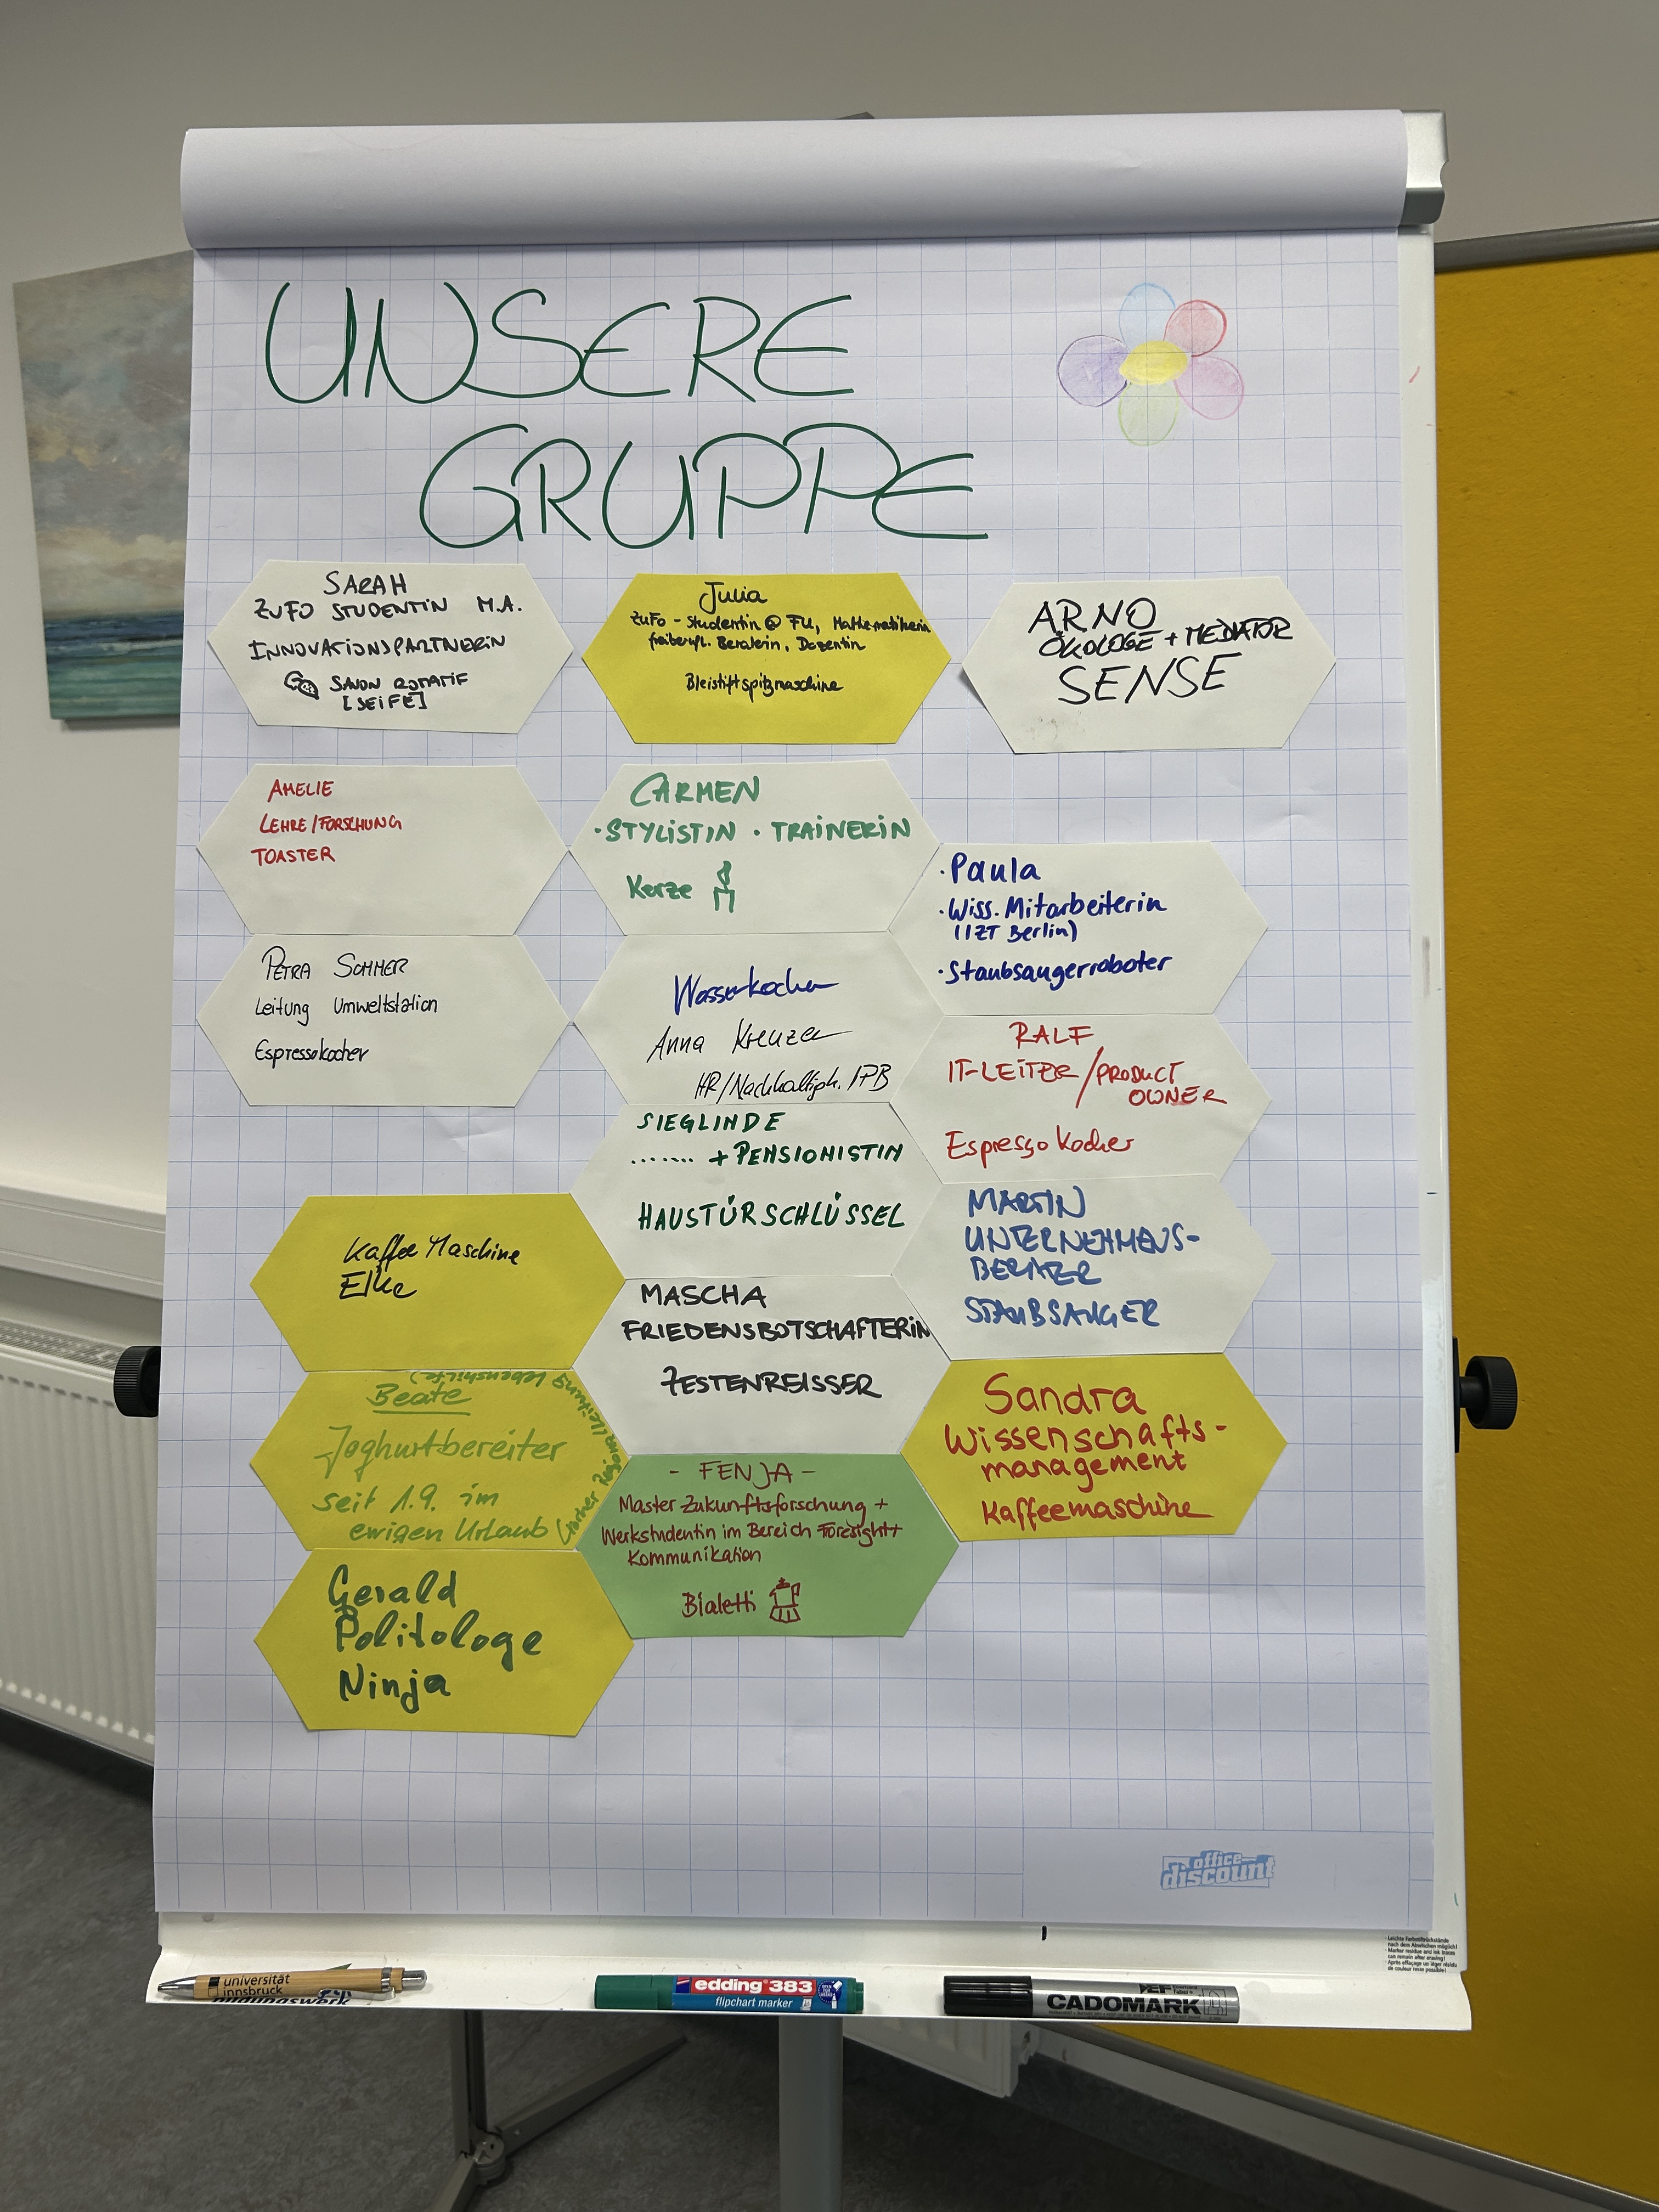 UNSERE
GRUPPE
SARAH
ZUFO STUDENTIN M.A.
INNOVATIONSPARTNERIN
SAVON ROTATIF
[SEIFE]
Julia
ZuFo - Studentin @ FU, Mathematikerin
freiberufl. Beraterin, Dozentin
Bleistiftspitzmaschine
ARNO
ÖKOLOGE + MEDIATOR
SENSE
AMELIE
LEHRE/FORSCHUNG
TOASTER
CARMEN
· STYLISTIN · TRAINERIN
Kerze
· Paula
· Wiss. Mitarbeiterin
(IZT Berlin)
· Staubsaugerroboter
PETRA SOMMER
Leitung Umweltstation
Espressokocher
Wasserkocher
Anna Kreuzer
HR/Nachhaltigk. IPB
RALF
IT-LEITER/PRODUCT
OWNER
Espresso Kocher
SIEGLINDE
....... + PENSIONISTIN
HAUSTÜRSCHLÜSSEL
MARTIN
UNTERNEHMENS-
BERATER
STAUBSAUGER
Kaffee Maschine
Elke
MASCHA
FRIEDENSBOTSCHAFTERIN
ZESTENREISSER
Beate
Joghurtbereiter
seit 1.9. im
ewigen Urlaub
(vorher Regionalleitung Lebenshilfe)
Sandra
Wissenschafts-
management
Kaffeemaschine
- FENJA -
Master Zukunftsforschung +
Werkstudentin im Bereich Foresight +
Kommunikation
Bialetti
Gerald
Politologe
Ninja
office
discount
· Leichte Farbstoffrückstände
nach dem Abwischen möglich!
· Marker residue and ink traces
can remain after erasing!
· Après effaçage un léger résidu
de couleur reste possible!
universität
innsbruck
edding 383
flipchart marker
CADOMARK